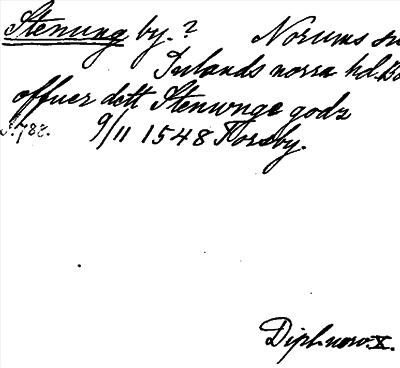 Stenung by. ? Norums sn
Inlands norra hd. Bo
offuer dett Stenwnge godz
S. 788. 9/11 1548 Torsby.
Dipl. norv. X.